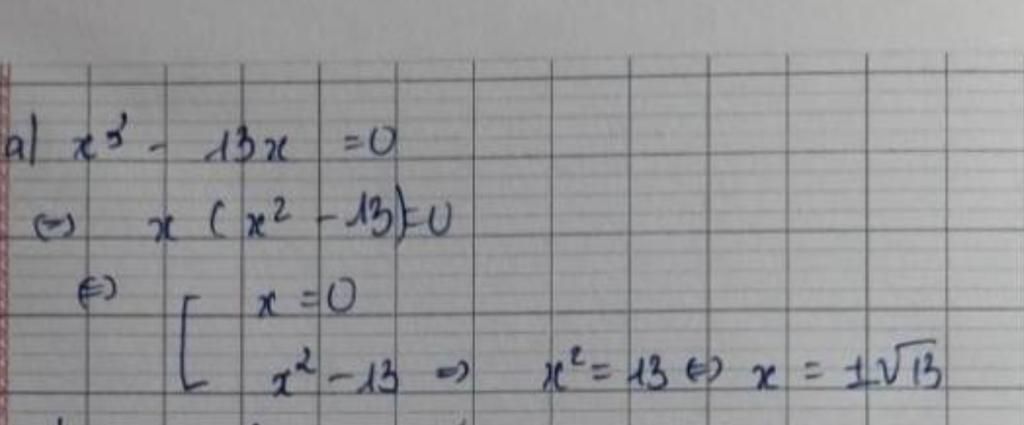 a) x³ - 13x = 0
⇔ x (x² - 13) = 0
⇔ [ x = 0
x² - 13 ⇒ x² = 13 ⇔ x = ±√13